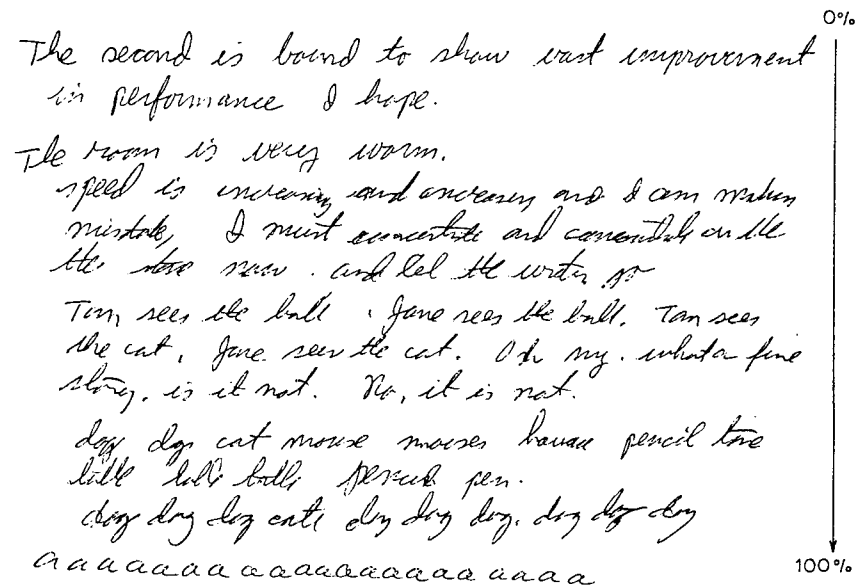 0%
The second is bound to show vast improvement
in performance I hope.
The room is very warm.
speed is increasing and increasing and I am making
mistake, I must concentrate and concentrate on the
the now. and let the writer go
Tom sees the ball. Jane sees the ball. Tom sees
the cat, Jane sees the cat. Oh my. what a fine
story. is it not. No, it is not.
dog dogs cat mouse mouses pencil
pen.
dog dog dog cats dog dog dog. dog dog dog
a a a a a a a a a a a a a a a a a a a a a
100%